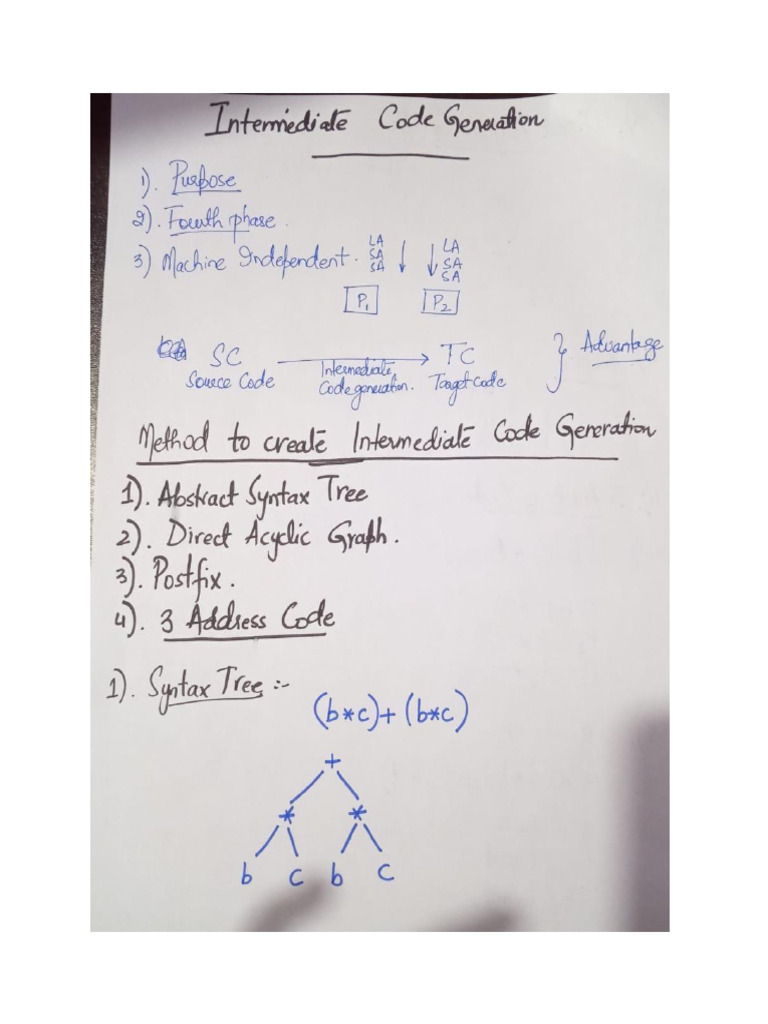 Intermediate Code Generation
1). Purpose
2). Fourth phase.
3) Machine Independent.
LA LA
SA SA
SA SA
P1 P2
SC → TC } Advantage
Source Code Intermediate Code generation. Target Code
Method to create Intermediate Code Generation
1). Abstract Syntax Tree
2). Direct Acyclic Graph.
3). Postfix.
4). 3 Address Code
1). Syntax Tree :-
(b*c)+(b*c)
+
* *
b c b c